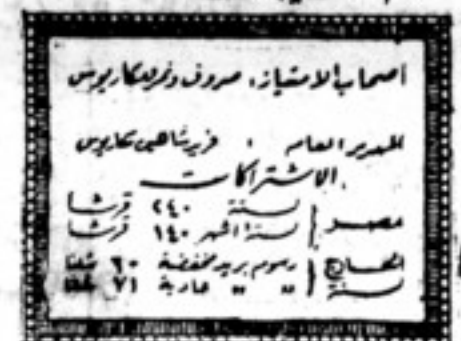 اصحاب الامتياز، صروف ونمر ومكاريوس
المدير العام ، فريد شاهين مكاريوس
الاشتراكات
مصر { لسنة ٢٤٠ قرشا
لستة اشهر ١٤٠ قرشا
الخارج { رسوم بريد مخفضة ٦٠ شلنا
لسنة { " " عادية ٧١ شلنا